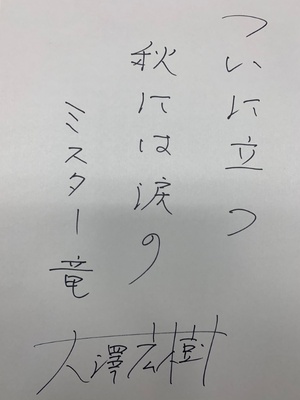 ついに立つ
秋には涙の
ミスター竜
大澤広樹